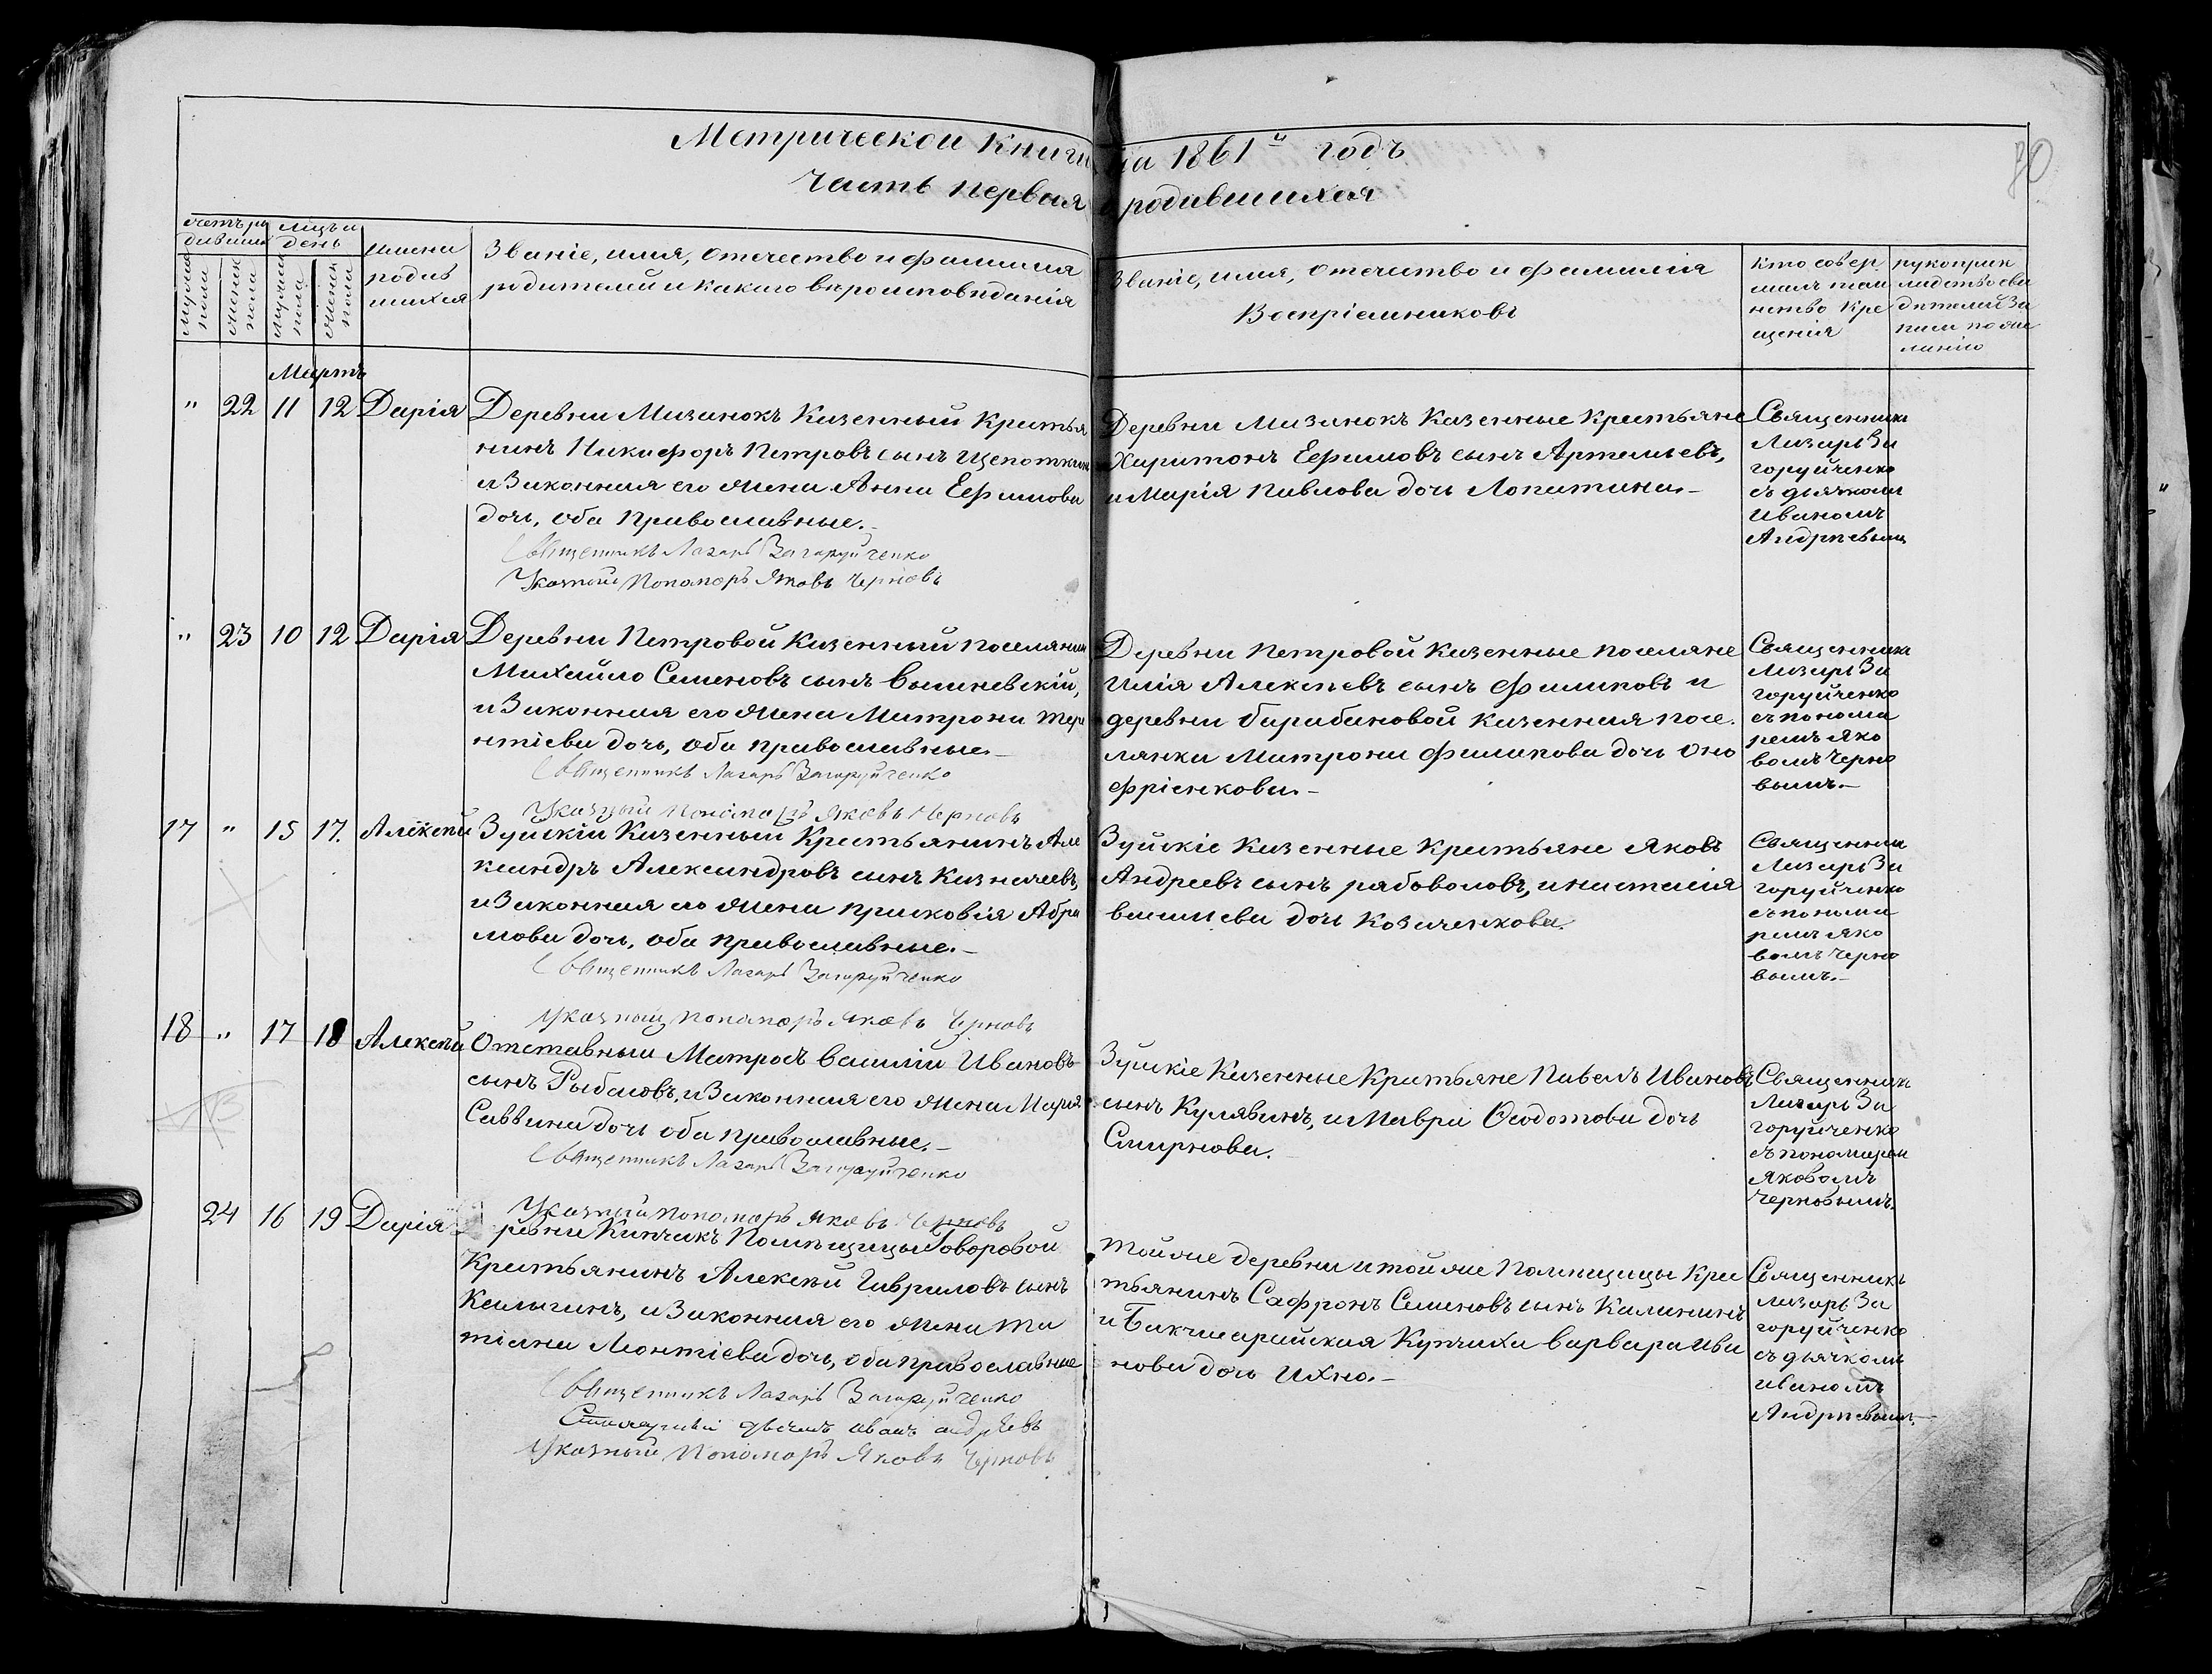 Метрической Книги на 1861й годъ
Часть первая о родившихся
80
счетъ ро дившихся
мужеска пола
женска пола
мѣсяцъ и день
мужеска пола
женска пола
имена
родив
шихся
Званіе, имя, отечество и фамилія
родителей и какого вѣроисповѣданія
Званіе, имя, отечество и фамилія
Воспріемниковъ
Кто совер
шалъ таи
нство Кре
щенія
рукоприк
ладство сви
дѣтелей за
писи по же
ланію
Мартъ
" 22 11 12 Дарія
Деревни Мизинокъ Казенный Крестья
нинъ Никифоръ Петровъ сынъ Щепоткинъ
и Законная его жена Анна Ефимова
дочь, оба Православные.-
Священникъ Лазарь Загоруйченко
Указный Пономарь Яковъ Черновъ
Деревни Мизинокъ Казенные Крестьяне
Харитонъ Ефимовъ сынъ Артемьевъ,
и Марія Павлова дочь Лопатина.-
Священникъ
Лазарь За
горуйченко
съ дьячкомъ
Иваномъ
Андреевымъ
" 23 10 12 Дарія
Деревни Петровой Казенный поселянинъ
Михайло Семеновъ сынъ Вышневскій,
и Законная его жена Матрона Тере
нтіева дочь, оба православные.-
Священникъ Лазарь Загоруйченко
Указный Пономарь Яковъ Черновъ
Деревни Петровой Казенные поселяне
Илія Алексѣевъ сынъ Филиповъ и
деревни Барабановой казенная посе
лянка Матрона Филипова дочь Оно
фріенкова.-
Священникъ
Лазарь За
горуйченко
съ понома
ремъ Яко
вомъ Черно
вымъ.-
17 " 15 17. Алексѣй
Зуйскій Казенный Крестьянинъ Але
ксандръ Александровъ сынъ Казначеевъ,
и Законная его жена Прасковія Абра
мова дочь, оба православные.-
Священникъ Лазарь Загоруйченко
Указный Пономарь Яковъ Черновъ
Зуйскіе Казенные Крестьяне Яковъ
Андреевъ сынъ рябоволовъ, и настасія
васильева дочь Козаченкова.
Священникъ
Лазарь За
горуйченко
съ понома
ремъ Яко
вомъ Черно
вымъ.-
18 " 17 18 Алексѣй
Отставный Матросъ Василій Ивановъ
сынъ Рыбасовъ, и Законная его жена Марія
Саввина дочь оба православные.-
Священникъ Лазарь Загоруйченко
Указный Пономарь Яковъ Черновъ
Зуйскіе Казенные Крестьяне Павелъ Ивановъ
сынъ Кулявинъ, и Мавра Ѳеодотова дочь
Смирнова.
Священникъ
Лазарь За
горуйченко
съ пономаремъ
Яковомъ
Черновымъ.
24 16 19 Дарія
ревни Кипчакъ Помѣщицы Говоровой
Крестьянинъ Алексѣй Гавриловъ сынъ
Калыгинъ, и Законная его жена Та
тіана Леонтіева дочь, оба православные
Священникъ Лазарь Загоруйченко
дьячекъ иванъ андрѣевъ
Указный Пономарь Яковъ Черновъ
Той же деревни и той же Помѣщицы Кре
стьянинъ Сафронъ Семеновъ сынъ Калининъ
и Бакчисарайская Купчиха варвара ива
нова дочь Ихно.-
Священникъ
лазарь За
горуйченко
съ дьячкомъ
иваномъ
Андреевымъ.-